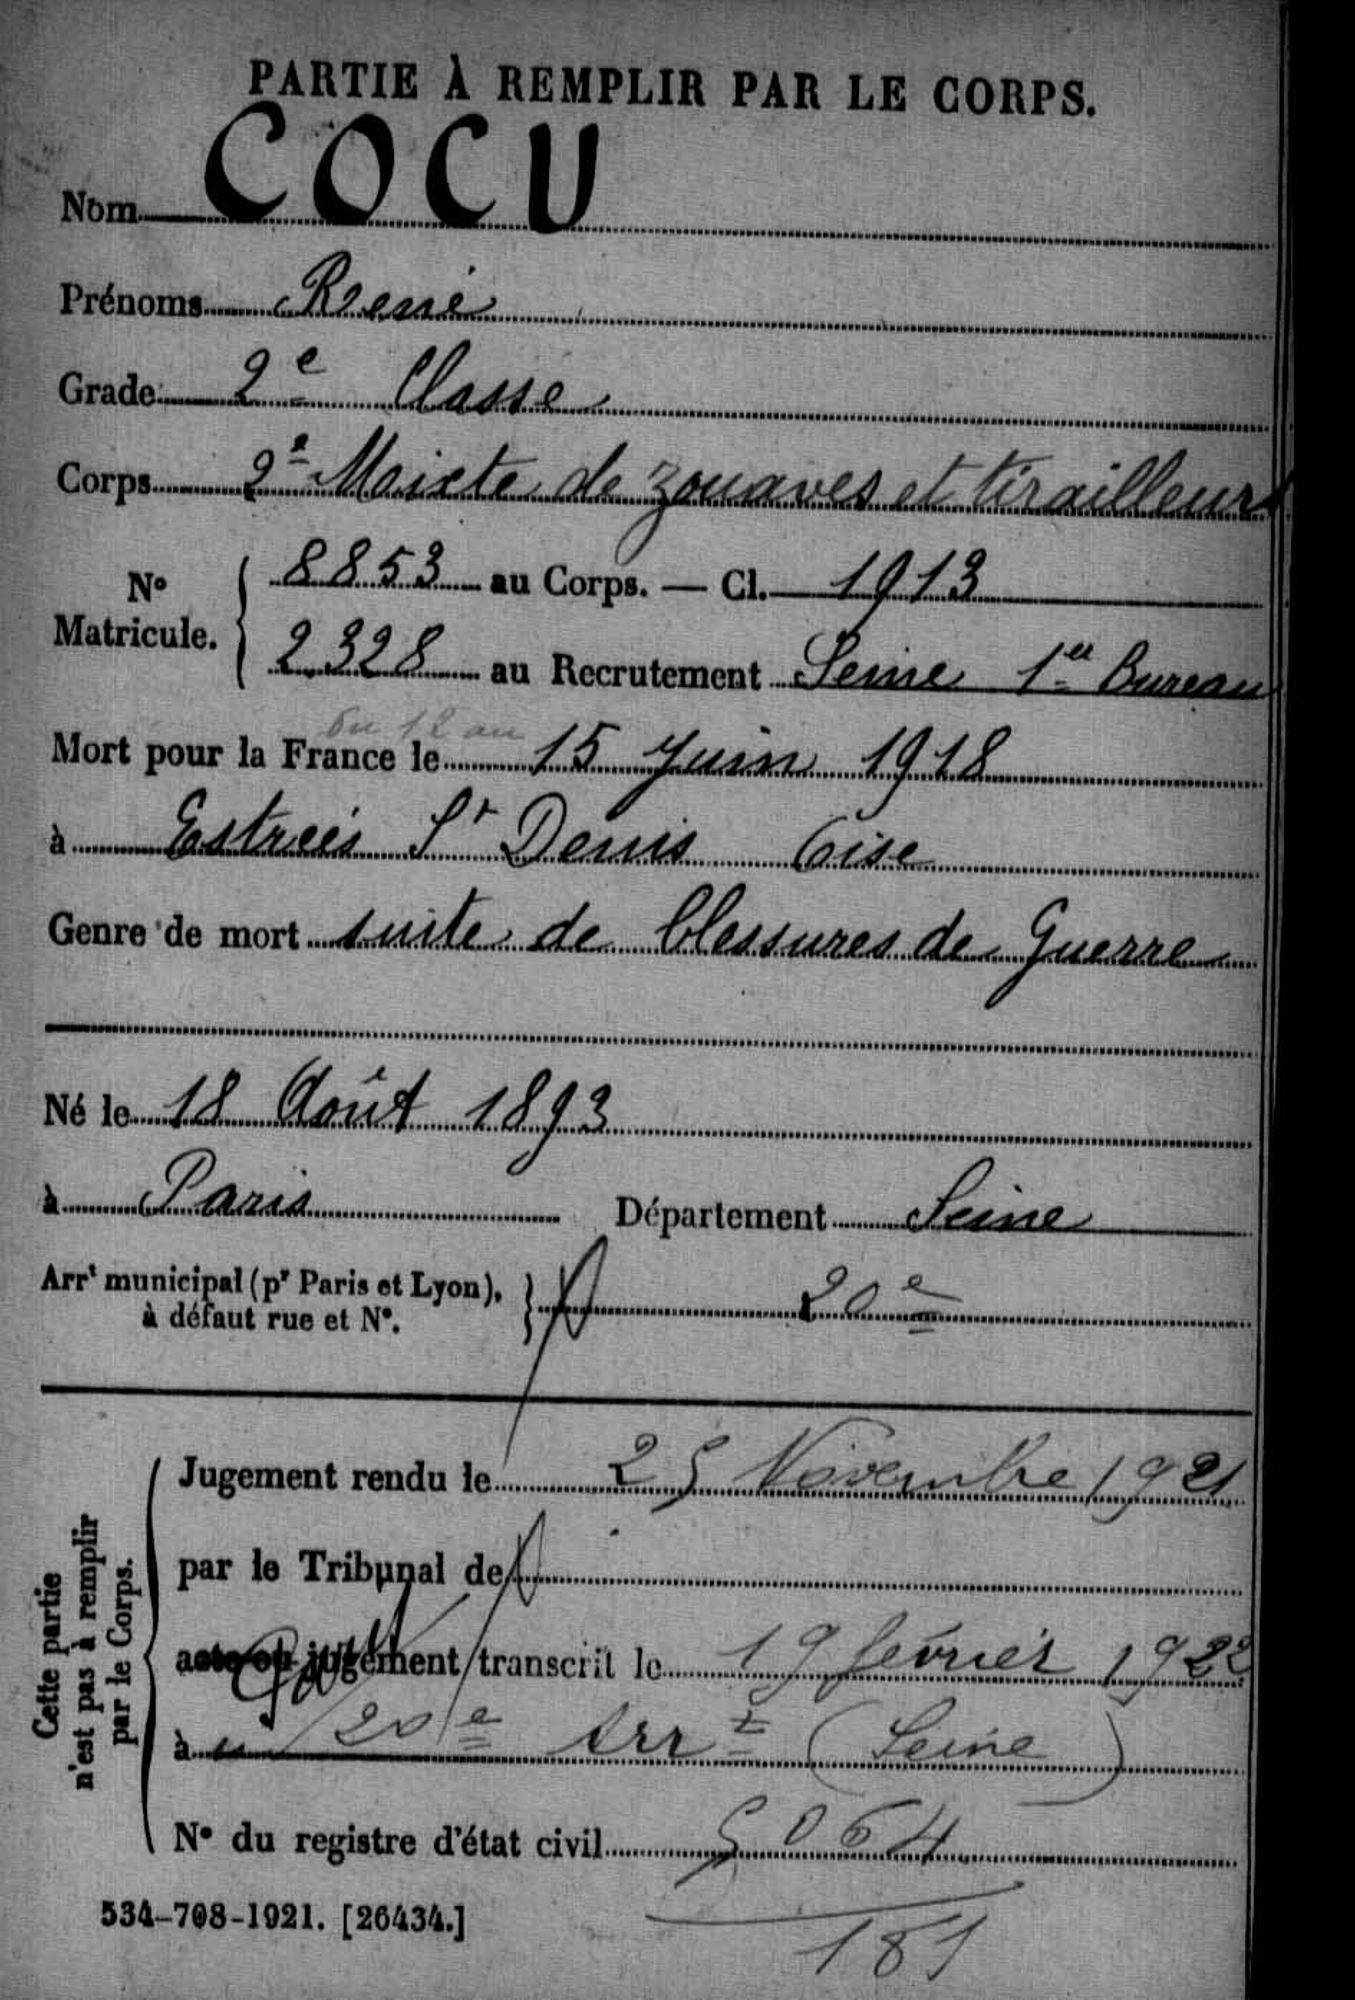 PARTIE À REMPLIR PAR LE CORPS.
Nom COCU
Prénoms René
Grade 2e Classe
Corps 2e Maixte de zouaves et tirailleurs
No Matricule. { 8853 au Corps. — Cl. 1913
2328 au Recrutement Seine 1er Bureau
du 12 au
Mort pour la France le 15 Juin 1918
à Estrées St Denis Oise
Genre de mort suite de blessures de Guerre
Né le 18 Août 1893
à Paris Département Seine
Arrt municipal (pr Paris et Lyon), à défaut rue et No. } 20e
Cette partie n'est pas à remplir par le Corps.
Jugement rendu le 25 Novembre 1921
par le Tribunal de
acte ou jugement transcrit le 19 février 1922
à 20e Arrt (Seine)
No du registre d'état civil 5064
534-708-1921. [26434.]
181